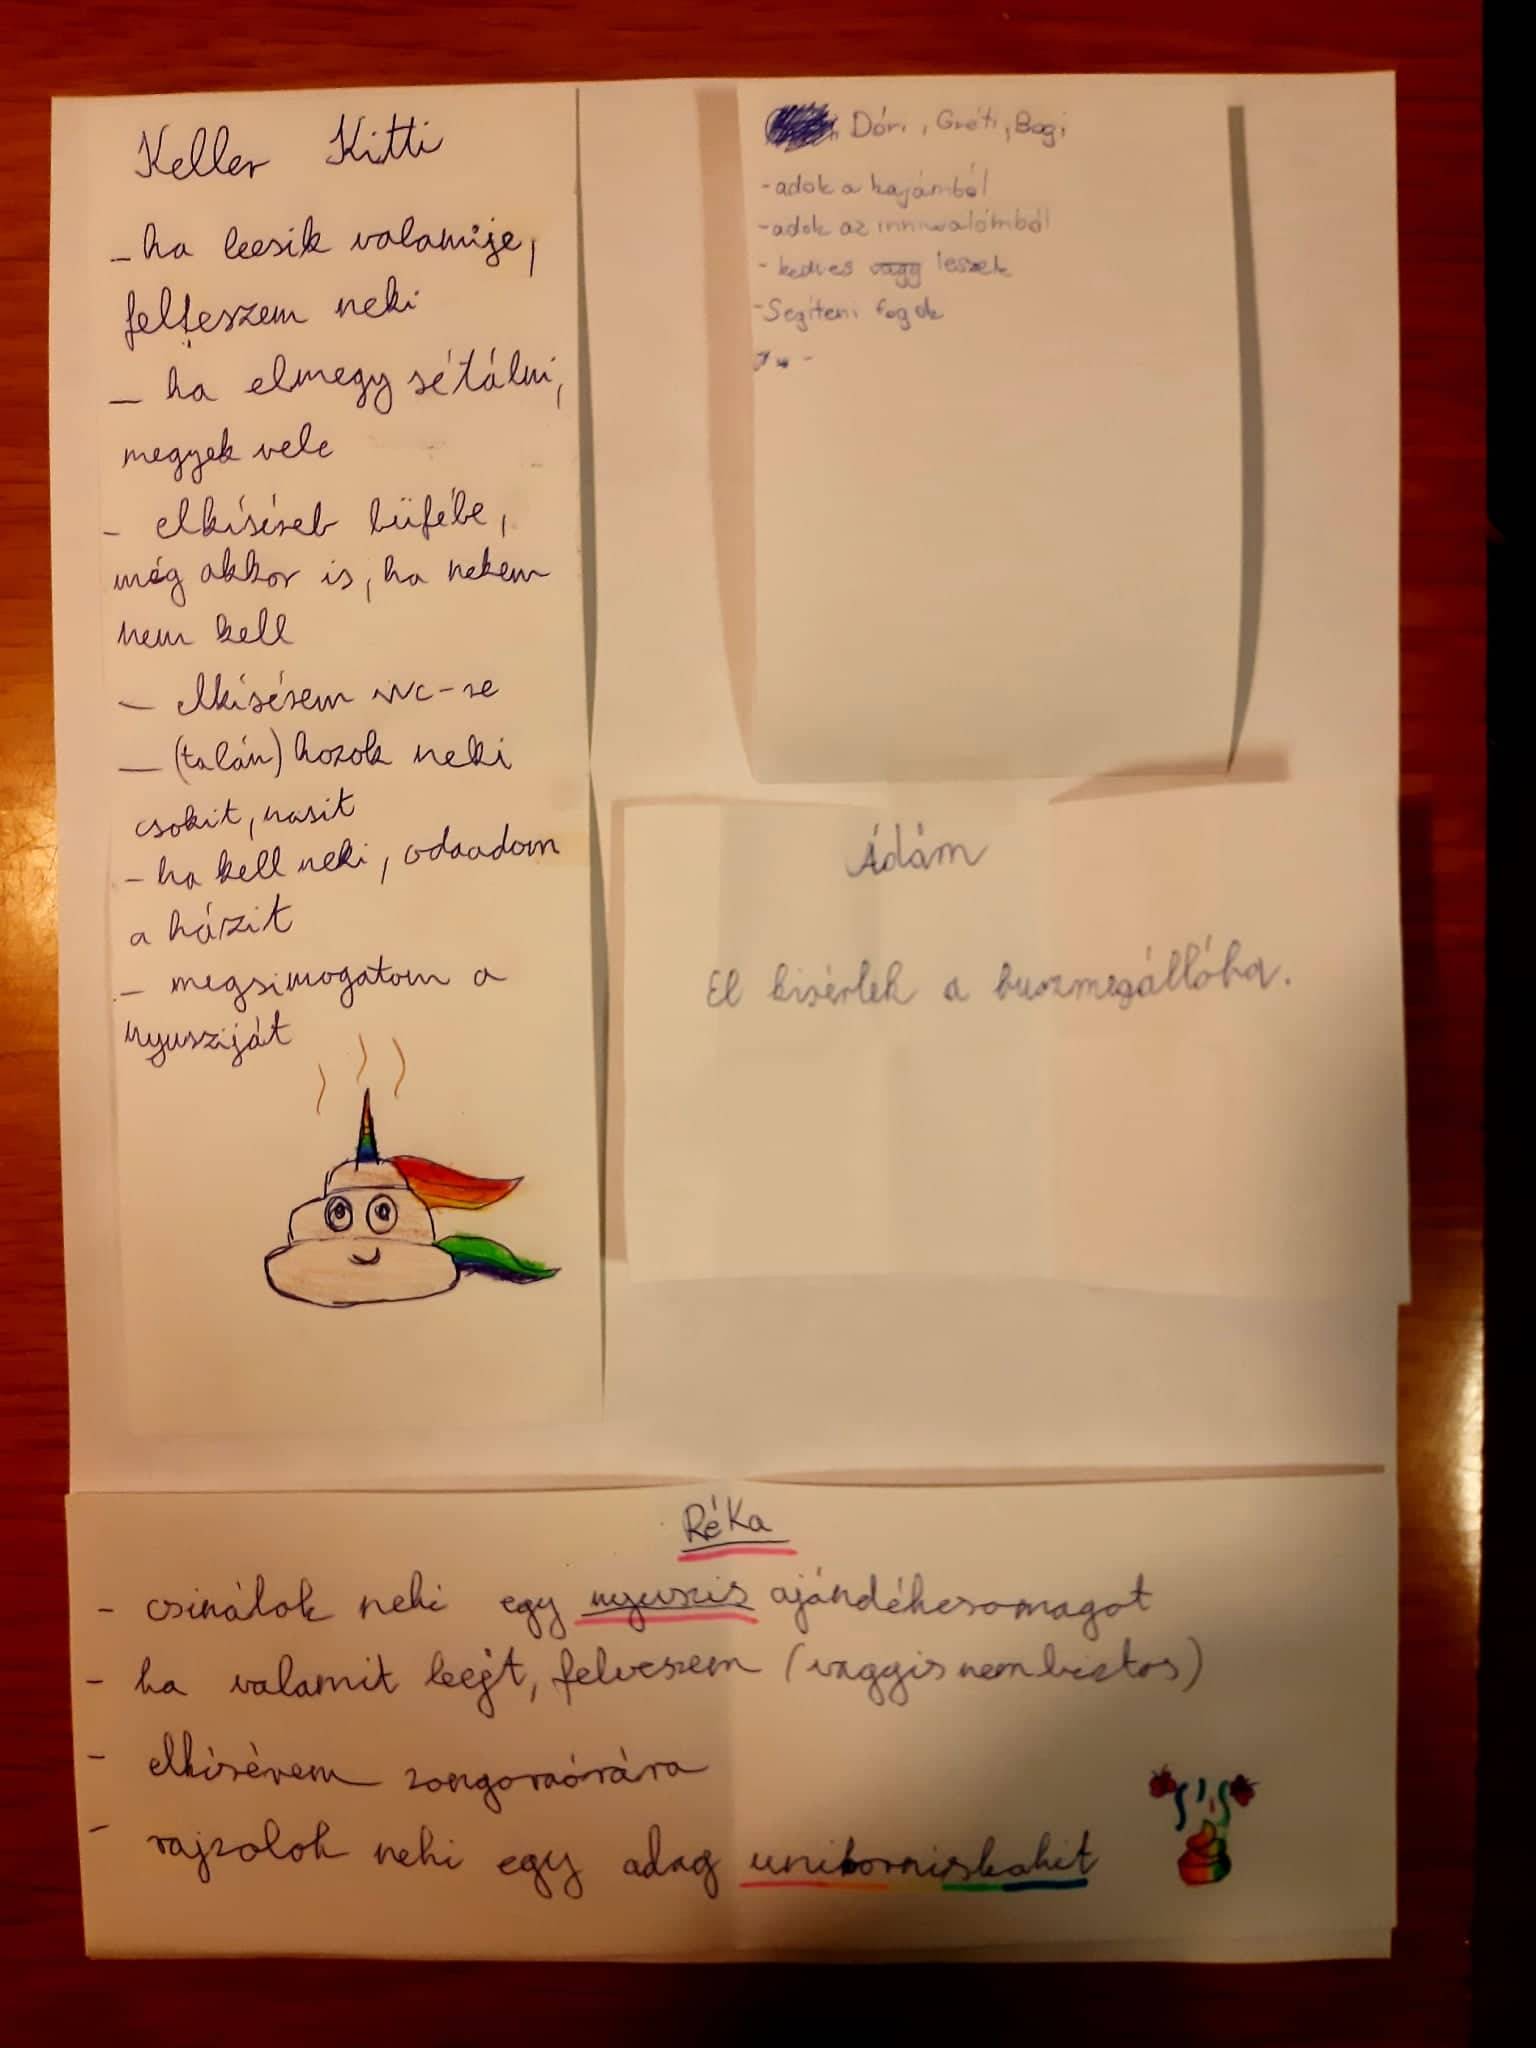 Keller Kitti
- ha leesik valamije,
felteszem neki
- ha elmegy sétálni,
megyek vele
- elkísérek büfébe,
még akkor is, ha nekem
nem kell
- elkísérem wc-re
- (talán) hozok neki
csokit, nasit
- ha kell neki, odaadom
a házit
- megsimogatom a
nyusziját
Dóri, Gréti, Bogi
- adok a kajámból
- adok az innivalómból
- kedves vagy leszek
- Segíteni fogok
Ádám
El kisérlek a buszmegállóba.
Réka
- csinálok neki egy nyuszis ajándékcsomagot
- ha valamit leejt, felveszem (vaggis nem biztos)
- elkísérem zongoraórára
- rajzolok neki egy adag unikorniskakit